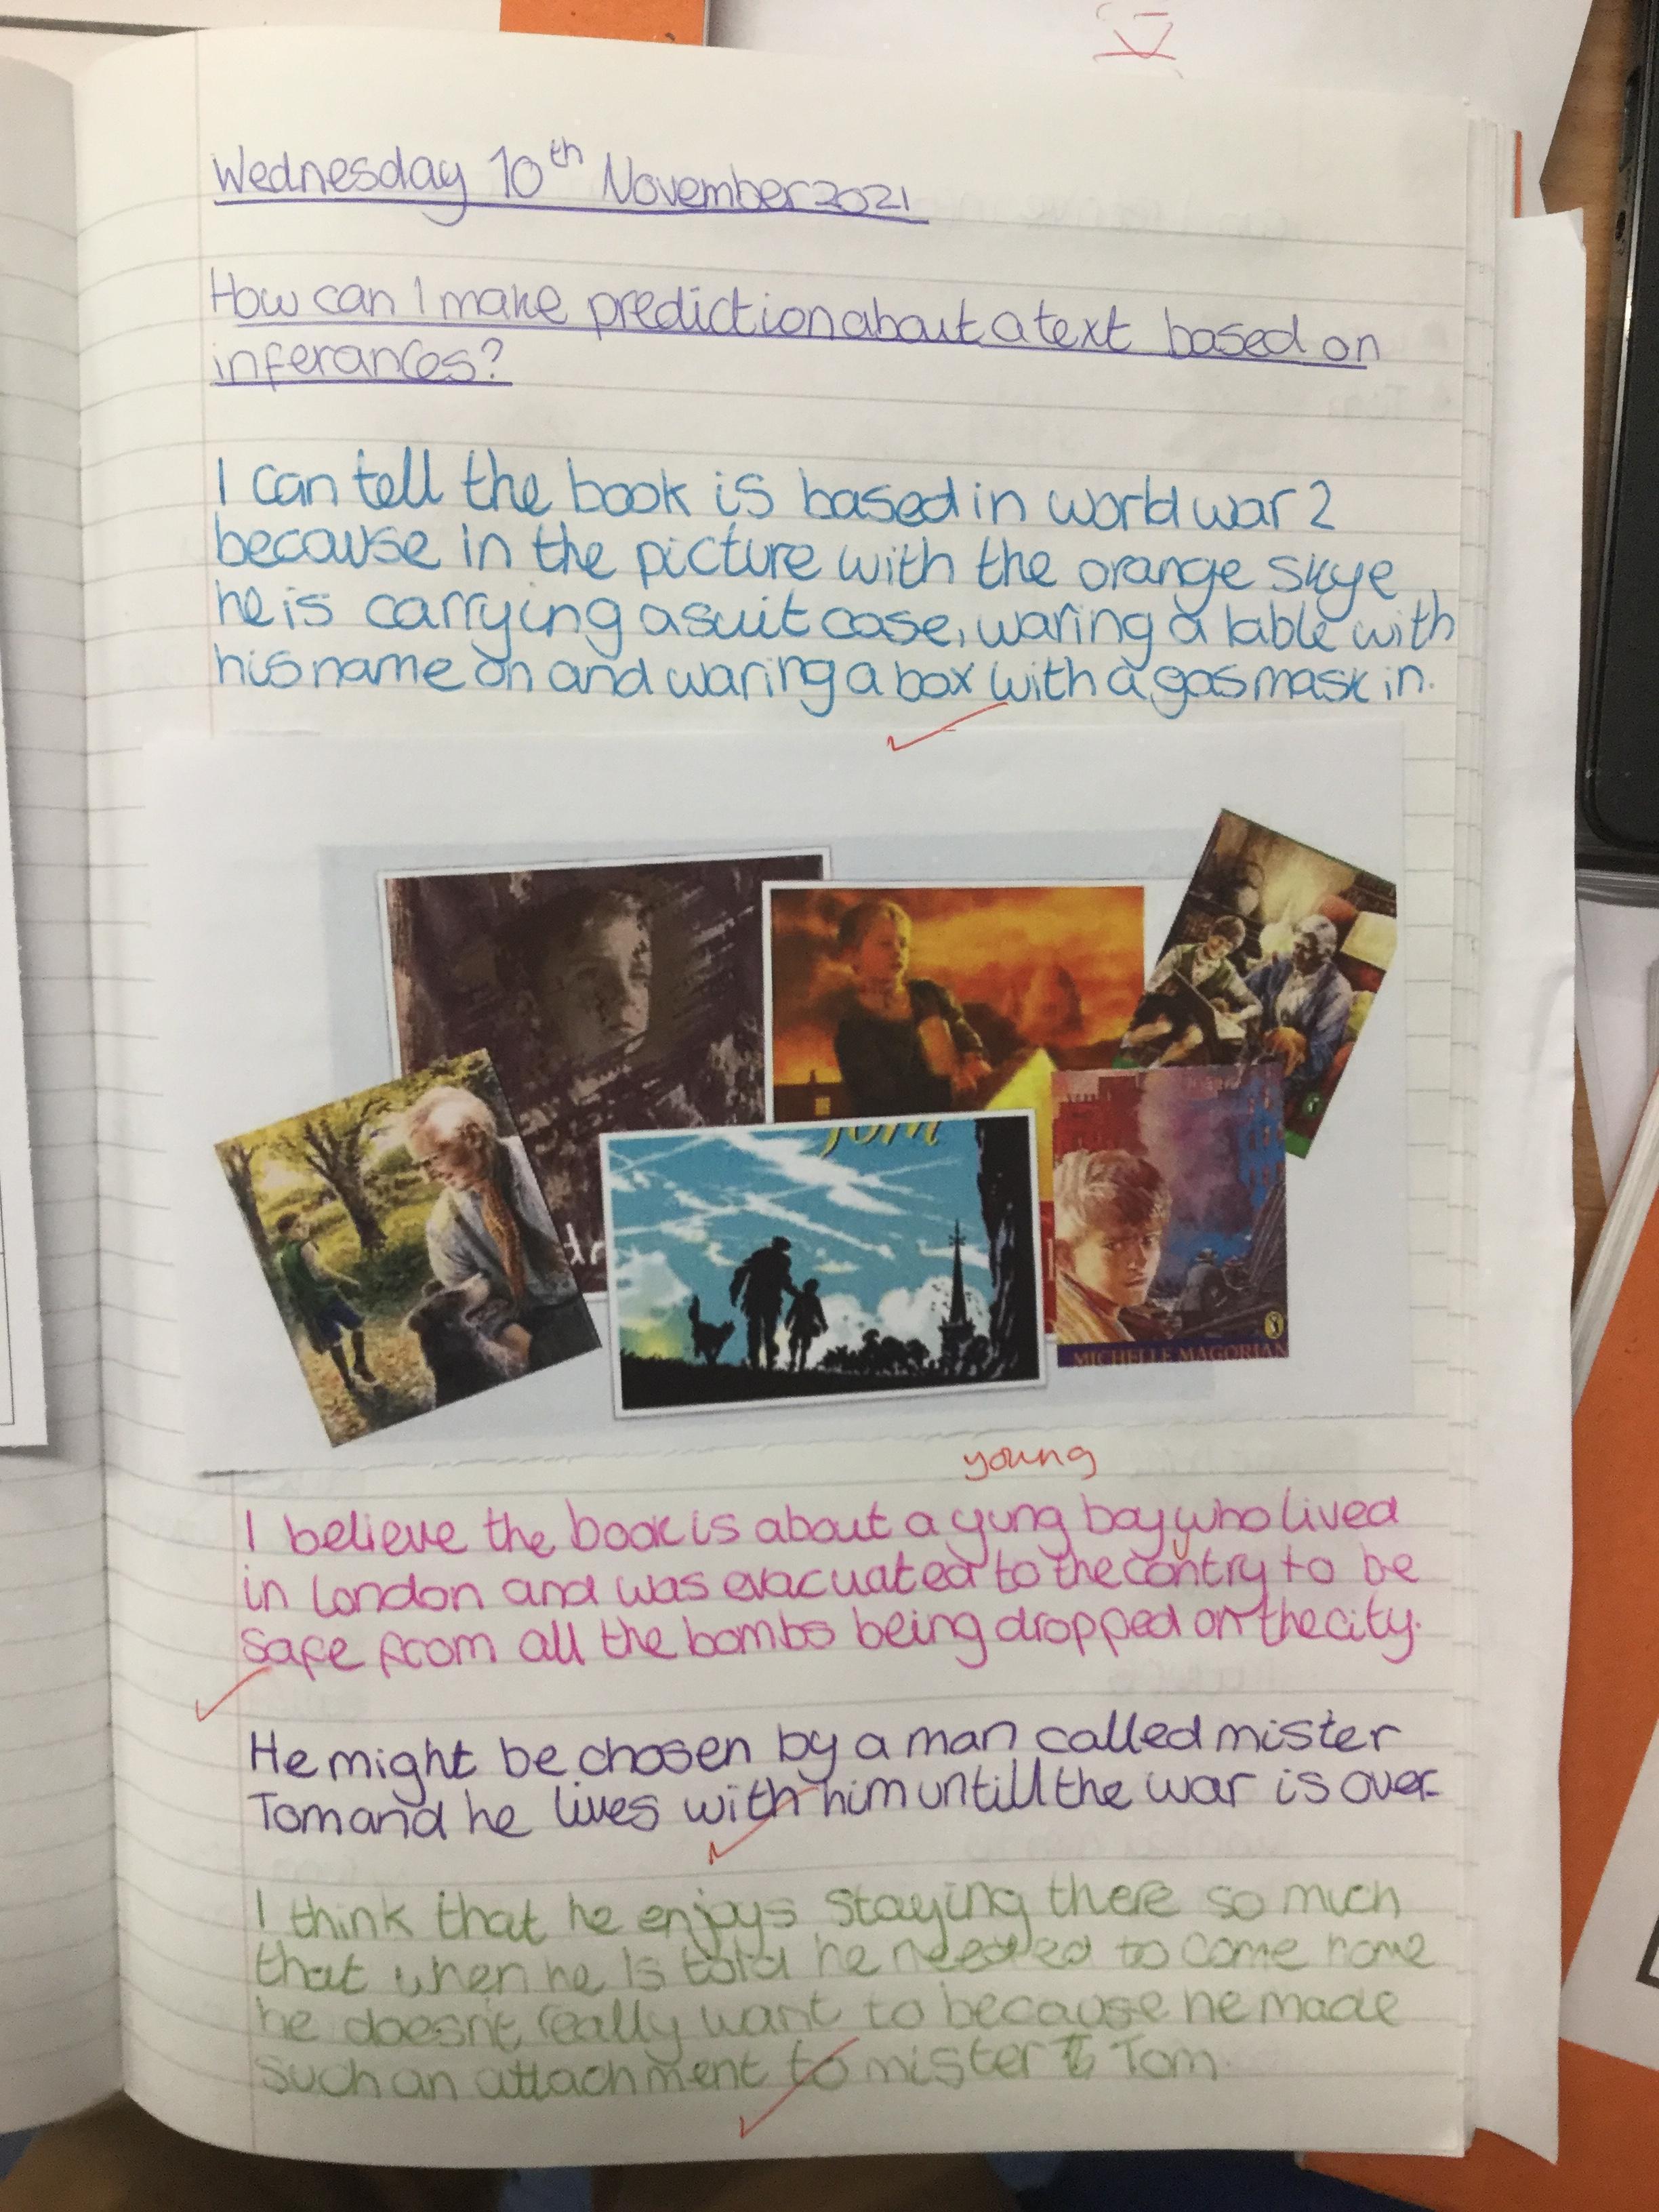 Wednesday 10th November 2021
How can I make prediction about a text based on
inferances?
I can tell the book is based in world war 2
because in the picture with the orange skye
he is carrying a suit case, waring a lable with
his name on and waring a box with a gas mask in.
Tom
MICHELLE MAGORIAN
young
I believe the book is about a yung boy who lived
in London and was evacuated to the contry to be
safe from all the bombs being dropped on the city.
He might be chosen by a man called mister
Tom and he lives with him untill the war is over.
I think that he enjoys staying there so much
that when he is told he needed to come home
he doesn't really want to because he made
such an attachment to mister Tom.